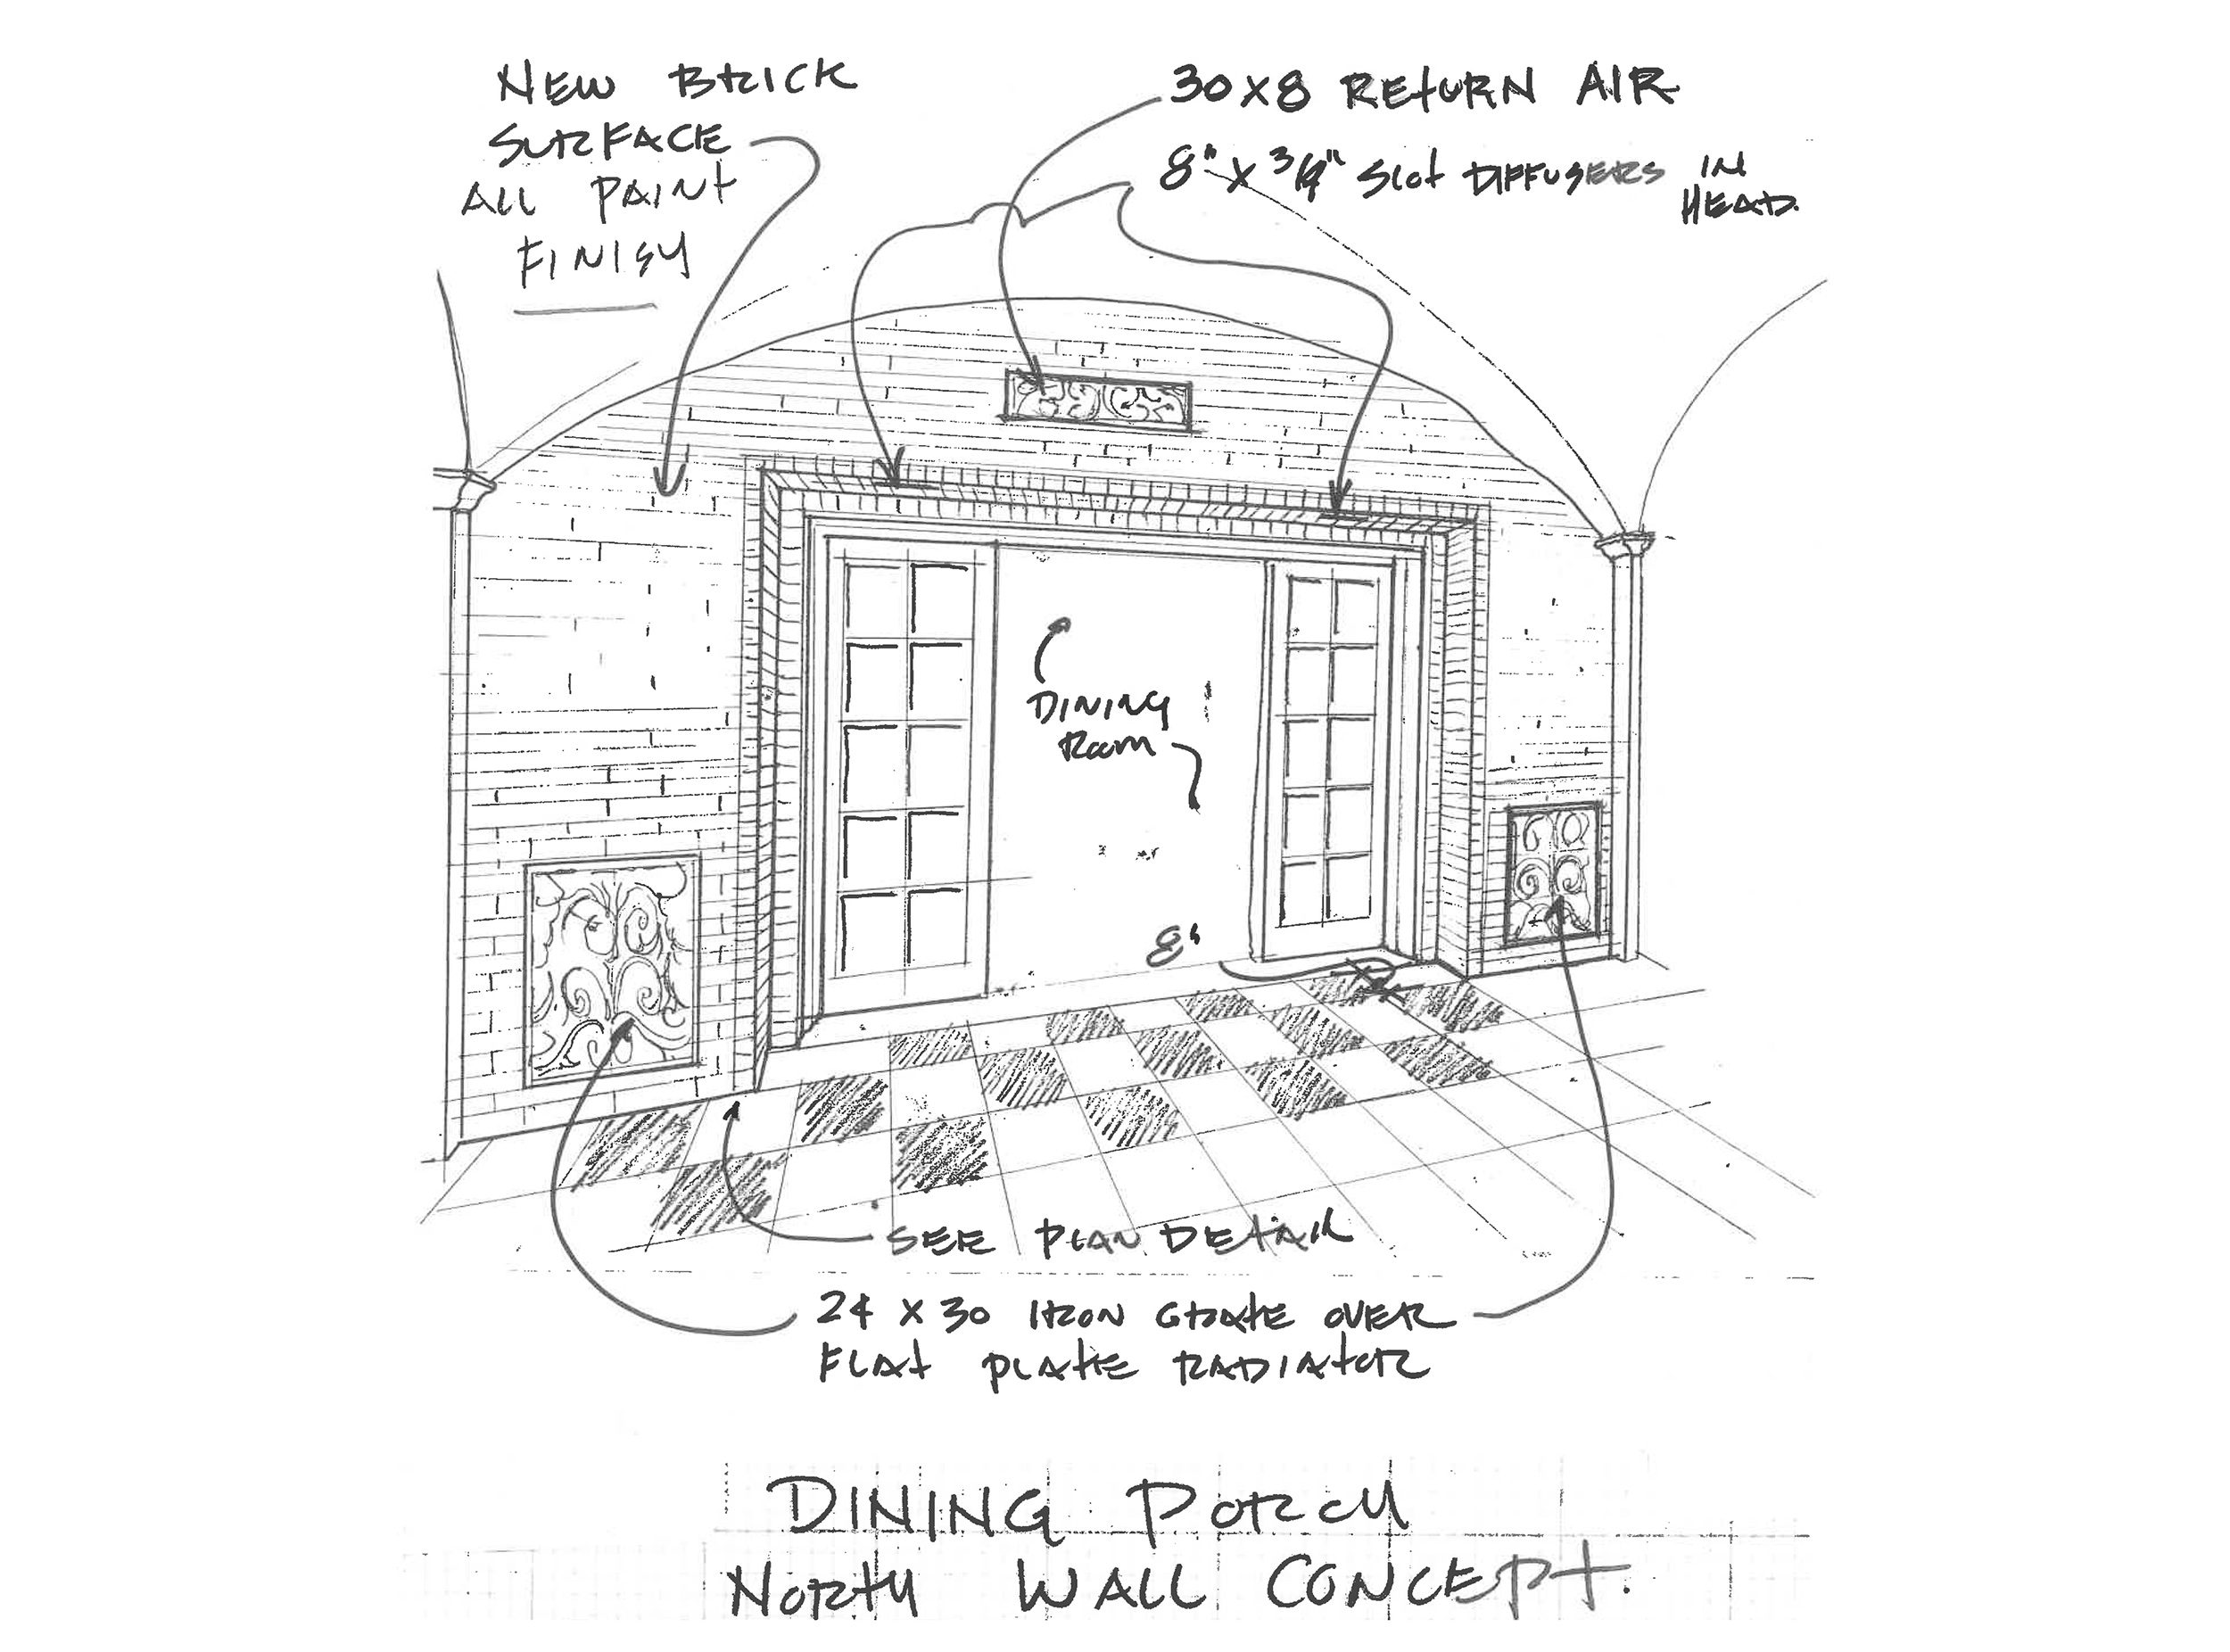 NEW BRICK
SURFACE
ALL PAINT
FINISH
30x8 RETURN AIR
8" x 3/4" SLOT DIFFUSERS IN
HEAD.
DINING
ROOM
8"
SEE PLAN DETAIL
24 x 30 IRON GRATE OVER
FLAT PLATE RADIATOR
DINING PORCH
NORTH WALL CONCEPT.